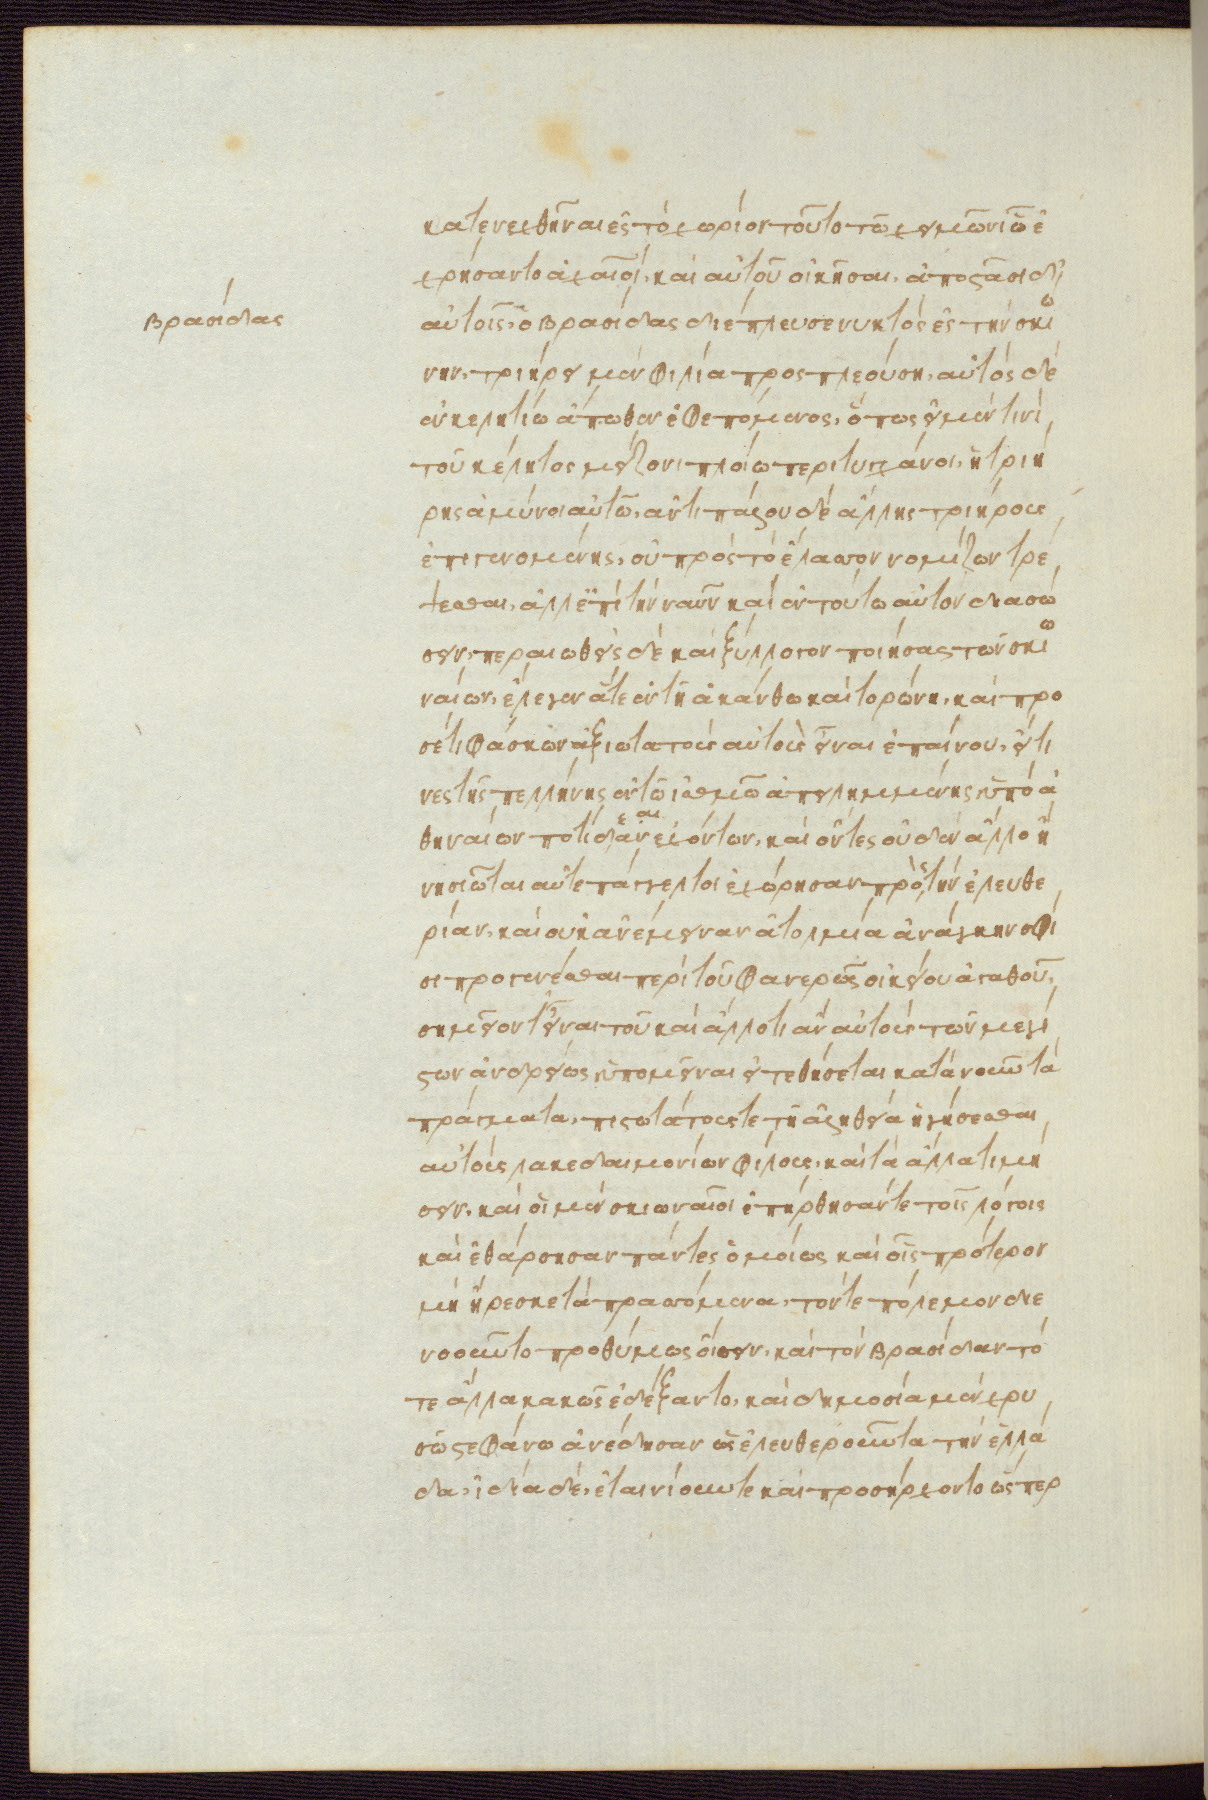 κατενεχθῆναι ἐς τὸ χωρίον τοῦτο τῷ χειμῶνι ᾧ ἐ
χρήσαντο ἀχαιοί, καὶ αὐτοῦ οἰκῆσαι. ἀποστᾶσι δ'
βρασίδας
αὐτοῖς, ὁ βρασίδας διέπλευσε νυκτὸς ἐς τὴν σκιώ
νην, τριήρει μὲν φιλία προσπλεούση, αὐτὸς δὲ
ἐν κελητίω ἄπωθεν ἐφεπόμενος, ὅπως εἰ μέν τινι
τοῦ κέλητος μείζονι πλοίω περιτυγχάνοι, ἡ τριή
ρης ἀμύνοι αὐτῶ, ἀντιπάλου δὲ ἄλλης τριήρους
ἐπιγενομένης, οὐ πρὸς τὸ ἔλασσον νομίζων τρέ
ψεσθαι, ἀλλ' ἐπὶ τὴν ναῦν καὶ ἐν τούτω αὐτὸν διασώ
σειν, περαιωθεὶς δὲ καὶ ξύλλογον ποιήσας τῶν σκιω
ναίων, ἔλεγεν ἅ τε ἐν τῆ ἀκάνθω καὶ τορώνη, καὶ προ
σέτι φάσκων ἀξιωτάτους αὐτοὺς εἶναι ἐπαίνου, εἵτι
νες τῆς παλλήνης ἐν τῶ ἰσθμῶ ἀπειλημμένης ὑπὸ ἀ
θηναίων ποτίδαιαν ἐχόντων, καὶ ὄντες οὐδὲν ἄλλο ἢ
νησιῶται αὐτεπάγγελτοι ἐχώρησαν πρὸς τὴν ἐλευθε
ρίαν, καὶ οὐκ ἀνέμειναν ἀτολμία ἀνάγκην σφί
σι προσγενέσθαι περὶ τοῦ φανερῶς οἰκείου ἀγαθοῦ,
σημεῖόν τ' εἶναι τοῦ καὶ ἄλλο τι ἂν αὐτοὺς τῶν μεγί
στων ἀνδρείως ὑπομεῖναι εἰ τεθήσεται κατὰ νοῦν τὰ
πράγματα, πιστοτάτους τε τῆ ἀληθεία ἡγήσεσθαι
αὐτοὺς λακεδαιμονίων φίλους, καὶ τὰ ἄλλα τιμή
σειν. καὶ οἱ μὲν σκιωναῖοι ἐπήρθησάν τε τοῖς λόγοις
καὶ ἐθάρσησαν πάντες ὁμοίως καὶ οἷς πρότερον
μὴ ἤρεσκε τὰ πρασσόμενα, τόν τε πόλεμον διε
νοοῦντο προθύμως οἴσειν, καὶ τὸν βρασίδαν τό
τε ἄλλα κακῶς ἐδέξαντο, καὶ δημοσία μὲν χρυ
σῷ στεφάνω ἀνέδησαν ὡς ἐλευθεροῦντα τὴν ἑλλά
δα, ἰδία δέ, ἐταινίουν τε καὶ προσήρχοντο ὥσπερ